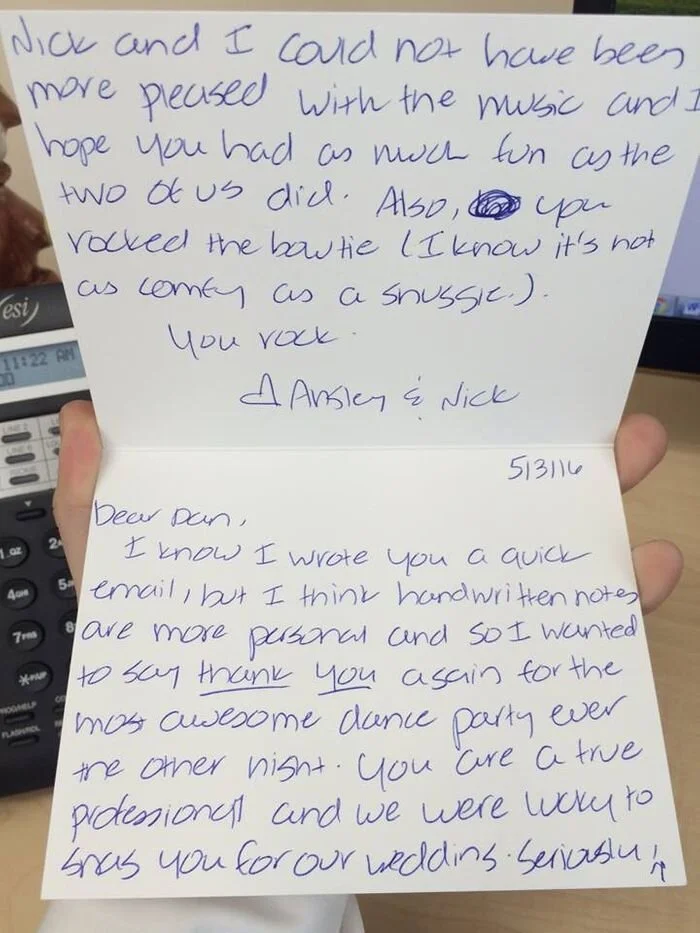 Nick and I could not have been
more pleased with the music and I
hope you had as much fun as the
two of us did. Also, you
rocked the bowtie (I know it's not
as comfy as a snuggie.).
You rock.
Ansley & Nick
5/3/16
Dear Dan,
I know I wrote you a quick
email, but I think handwritten notes
are more personal and so I wanted
to say thank you again for the
most awesome dance party ever
the other night. You are a true
professional and we were lucky to
snag you for our wedding. Seriously!
esi
11:22 AM
LINE 2
1 QZ
2
4 GHI
5
7 PRS
8
FLASH/RDL